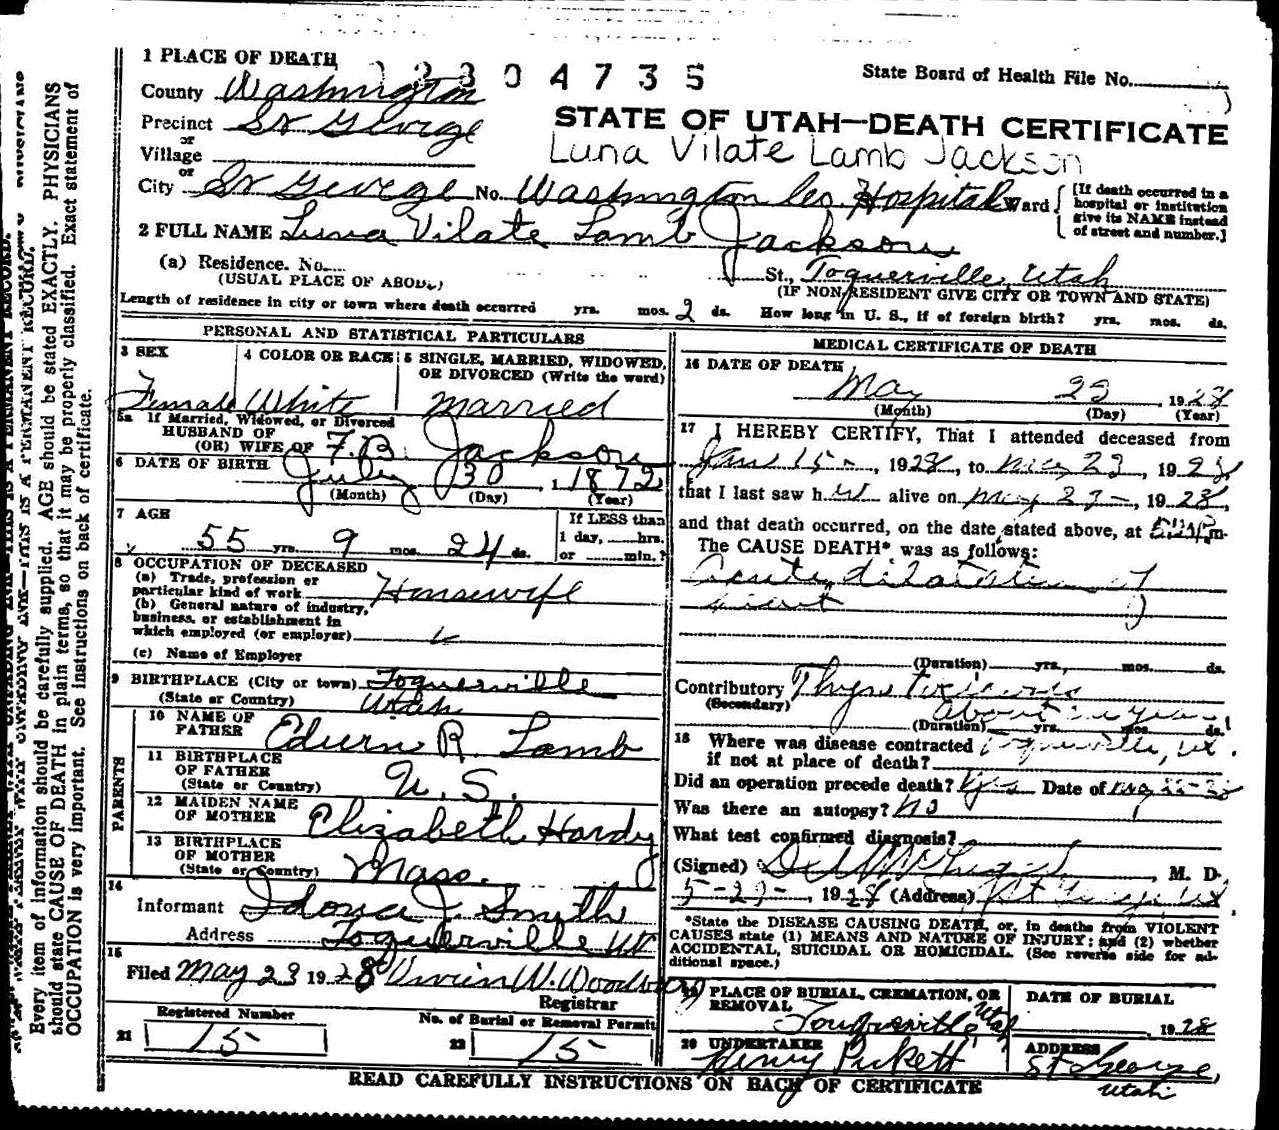 1 PLACE OF DEATH
304735
State Board of Health File No.
County Washington
Precinct St George
or
Village
or
STATE OF UTAH—DEATH CERTIFICATE
Luna Vilate Lamb Jackson
City St George No. Washington Co. Hospital Ward
[If death occurred in a hospital or institution give its NAME instead of street and number.]
2 FULL NAME Luna Vilate Lamb Jackson
(a) Residence. No. St., Toquerville, Utah
(USUAL PLACE OF ABODE) (IF NON RESIDENT GIVE CITY OR TOWN AND STATE)
Length of residence in city or town where death occurred yrs. mos. 2 ds. How long in U. S., if of foreign birth? yrs. mos. ds.
PERSONAL AND STATISTICAL PARTICULARS
3 SEX
Female
4 COLOR OR RACE
White
5 SINGLE, MARRIED, WIDOWED, OR DIVORCED (Write the word)
Married
5a If Married, Widowed, or Divorced
HUSBAND OF
(OR) WIFE OF F.B. Jackson
6 DATE OF BIRTH July 30 1872
(Month) (Day) (Year)
7 AGE
55 yrs. 9 mos. 24 ds.
If LESS than
1 day, hrs.
or min.?
8 OCCUPATION OF DECEASED
(a) Trade, profession or
particular kind of work Housewife
(b) General nature of industry,
business, or establishment in
which employed (or employer)
(c) Name of Employer
9 BIRTHPLACE (City or town) Toquerville
(State or Country) Utah
PARENTS
10 NAME OF
FATHER Edwin R Lamb
11 BIRTHPLACE
OF FATHER
(State or Country) U. S.
12 MAIDEN NAME
OF MOTHER Elizabeth Hardy
13 BIRTHPLACE
OF MOTHER
(State or Country) Mass.
14
Informant Idona J. Smyth
Address Toquerville Ut
15
Filed May 23 1928
Registrar
Registered Number
21 15
No. of Burial or Removal Permit
22 15
MEDICAL CERTIFICATE OF DEATH
16 DATE OF DEATH
May 23 1928
(Month) (Day) (Year)
17 I HEREBY CERTIFY, That I attended deceased from
Jan 15 , 1928, to May 23 1928
that I last saw her alive on May 23 , 1928,
and that death occurred, on the date stated above, at m.
The CAUSE DEATH* was as follows:
Acute dilatation of
heart
(Duration) yrs. mos. ds.
Contributory
(Secondary)
About a year
(Duration) yrs. mos. ds.
18 Where was disease contracted
if not at place of death? Toquerville, Ut.
Did an operation precede death? Yes Date of
Was there an autopsy? No
What test confirmed diagnosis?
(Signed) M. D.
5-23- , 1928 (Address) St George, Ut.
*State the DISEASE CAUSING DEATH, or, in deaths from VIOLENT
CAUSES state (1) MEANS AND NATURE OF INJURY; and (2) whether
ACCIDENTAL, SUICIDAL OR HOMICIDAL. (See reverse side for ad-
ditional space.)
19 PLACE OF BURIAL, CREMATION, OR
REMOVAL
Toquerville, Utah
DATE OF BURIAL
1928
20 UNDERTAKER
Henry Pickett
ADDRESS
St George,
Utah
READ CAREFULLY INSTRUCTIONS ON BACK OF CERTIFICATE
Every item of information should be carefully supplied. AGE should be stated EXACTLY. PHYSICIANS
should state CAUSE OF DEATH in plain terms, so that it may be properly classified. Exact statement of
OCCUPATION is very important. See instructions on back of certificate.